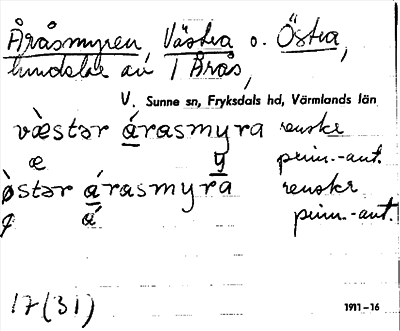 Åråsmyren, Västra o. Östra,
hundelar av 1 Årås,
V. Sunne sn, Fryksdals hd, Värmlands län
væ̀stər árasmyra renskr
æ y prim.-ant.
ø̀stər árasmyra renskr
ø á prim.-ant.
17(31)
1911-16